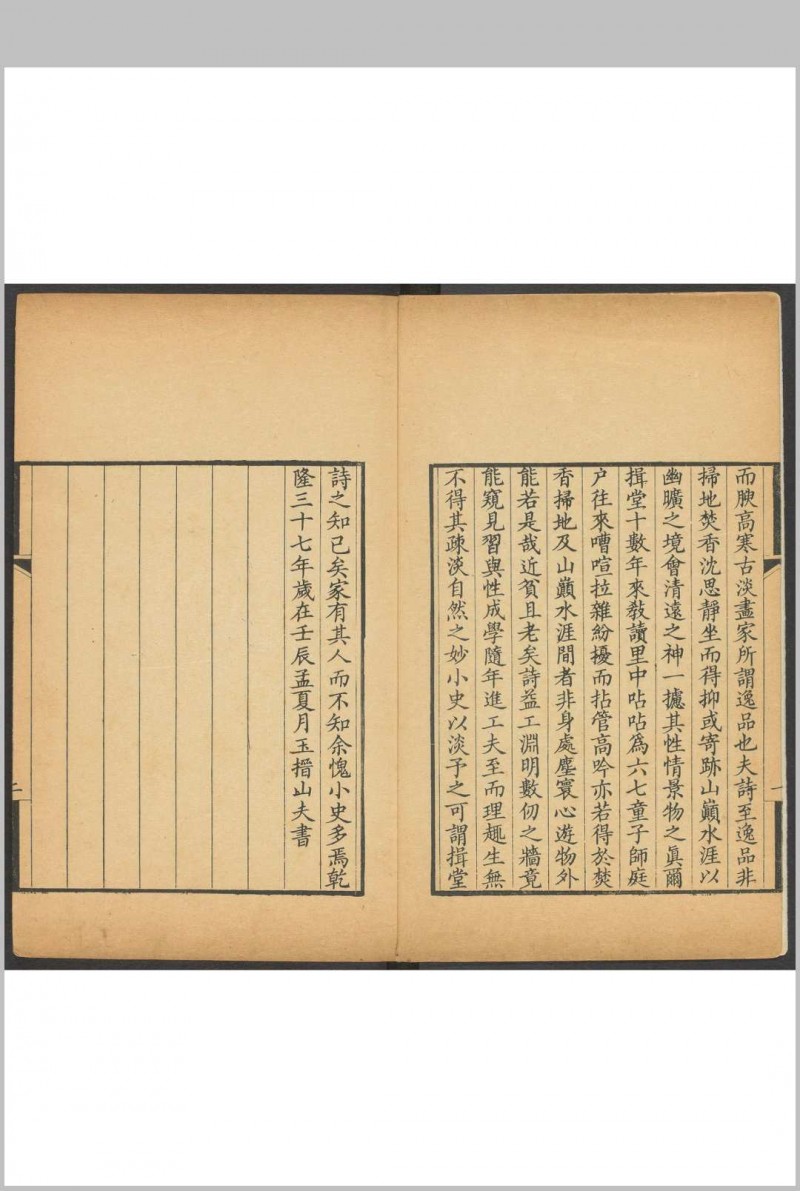 而腴高寒古淡畫家所謂逸品也夫詩至逸品非
掃地焚香沈思靜坐而得抑或寄跡山巔水涯以
幽曠之境會清遠之神一攄其性情景物之眞爾
揖堂十數年來教讀里中呫呫爲六七童子師庭
户往來嘈喧拉雜紛擾而拈管高吟亦若得於焚
香掃地及山巔水涯間者非身處塵寰心遊物外
能若是哉近貧且老矣詩益工淵明數仞之牆竟
能窺見習與性成學隨年進工夫至而理趣生無
不得其疎淡自然之妙小史以淡予之可謂揖堂
一
詩之知已矣家有其人而不知余愧小史多焉乾
隆三十七年歲在壬辰孟夏月玉搢山夫書
二